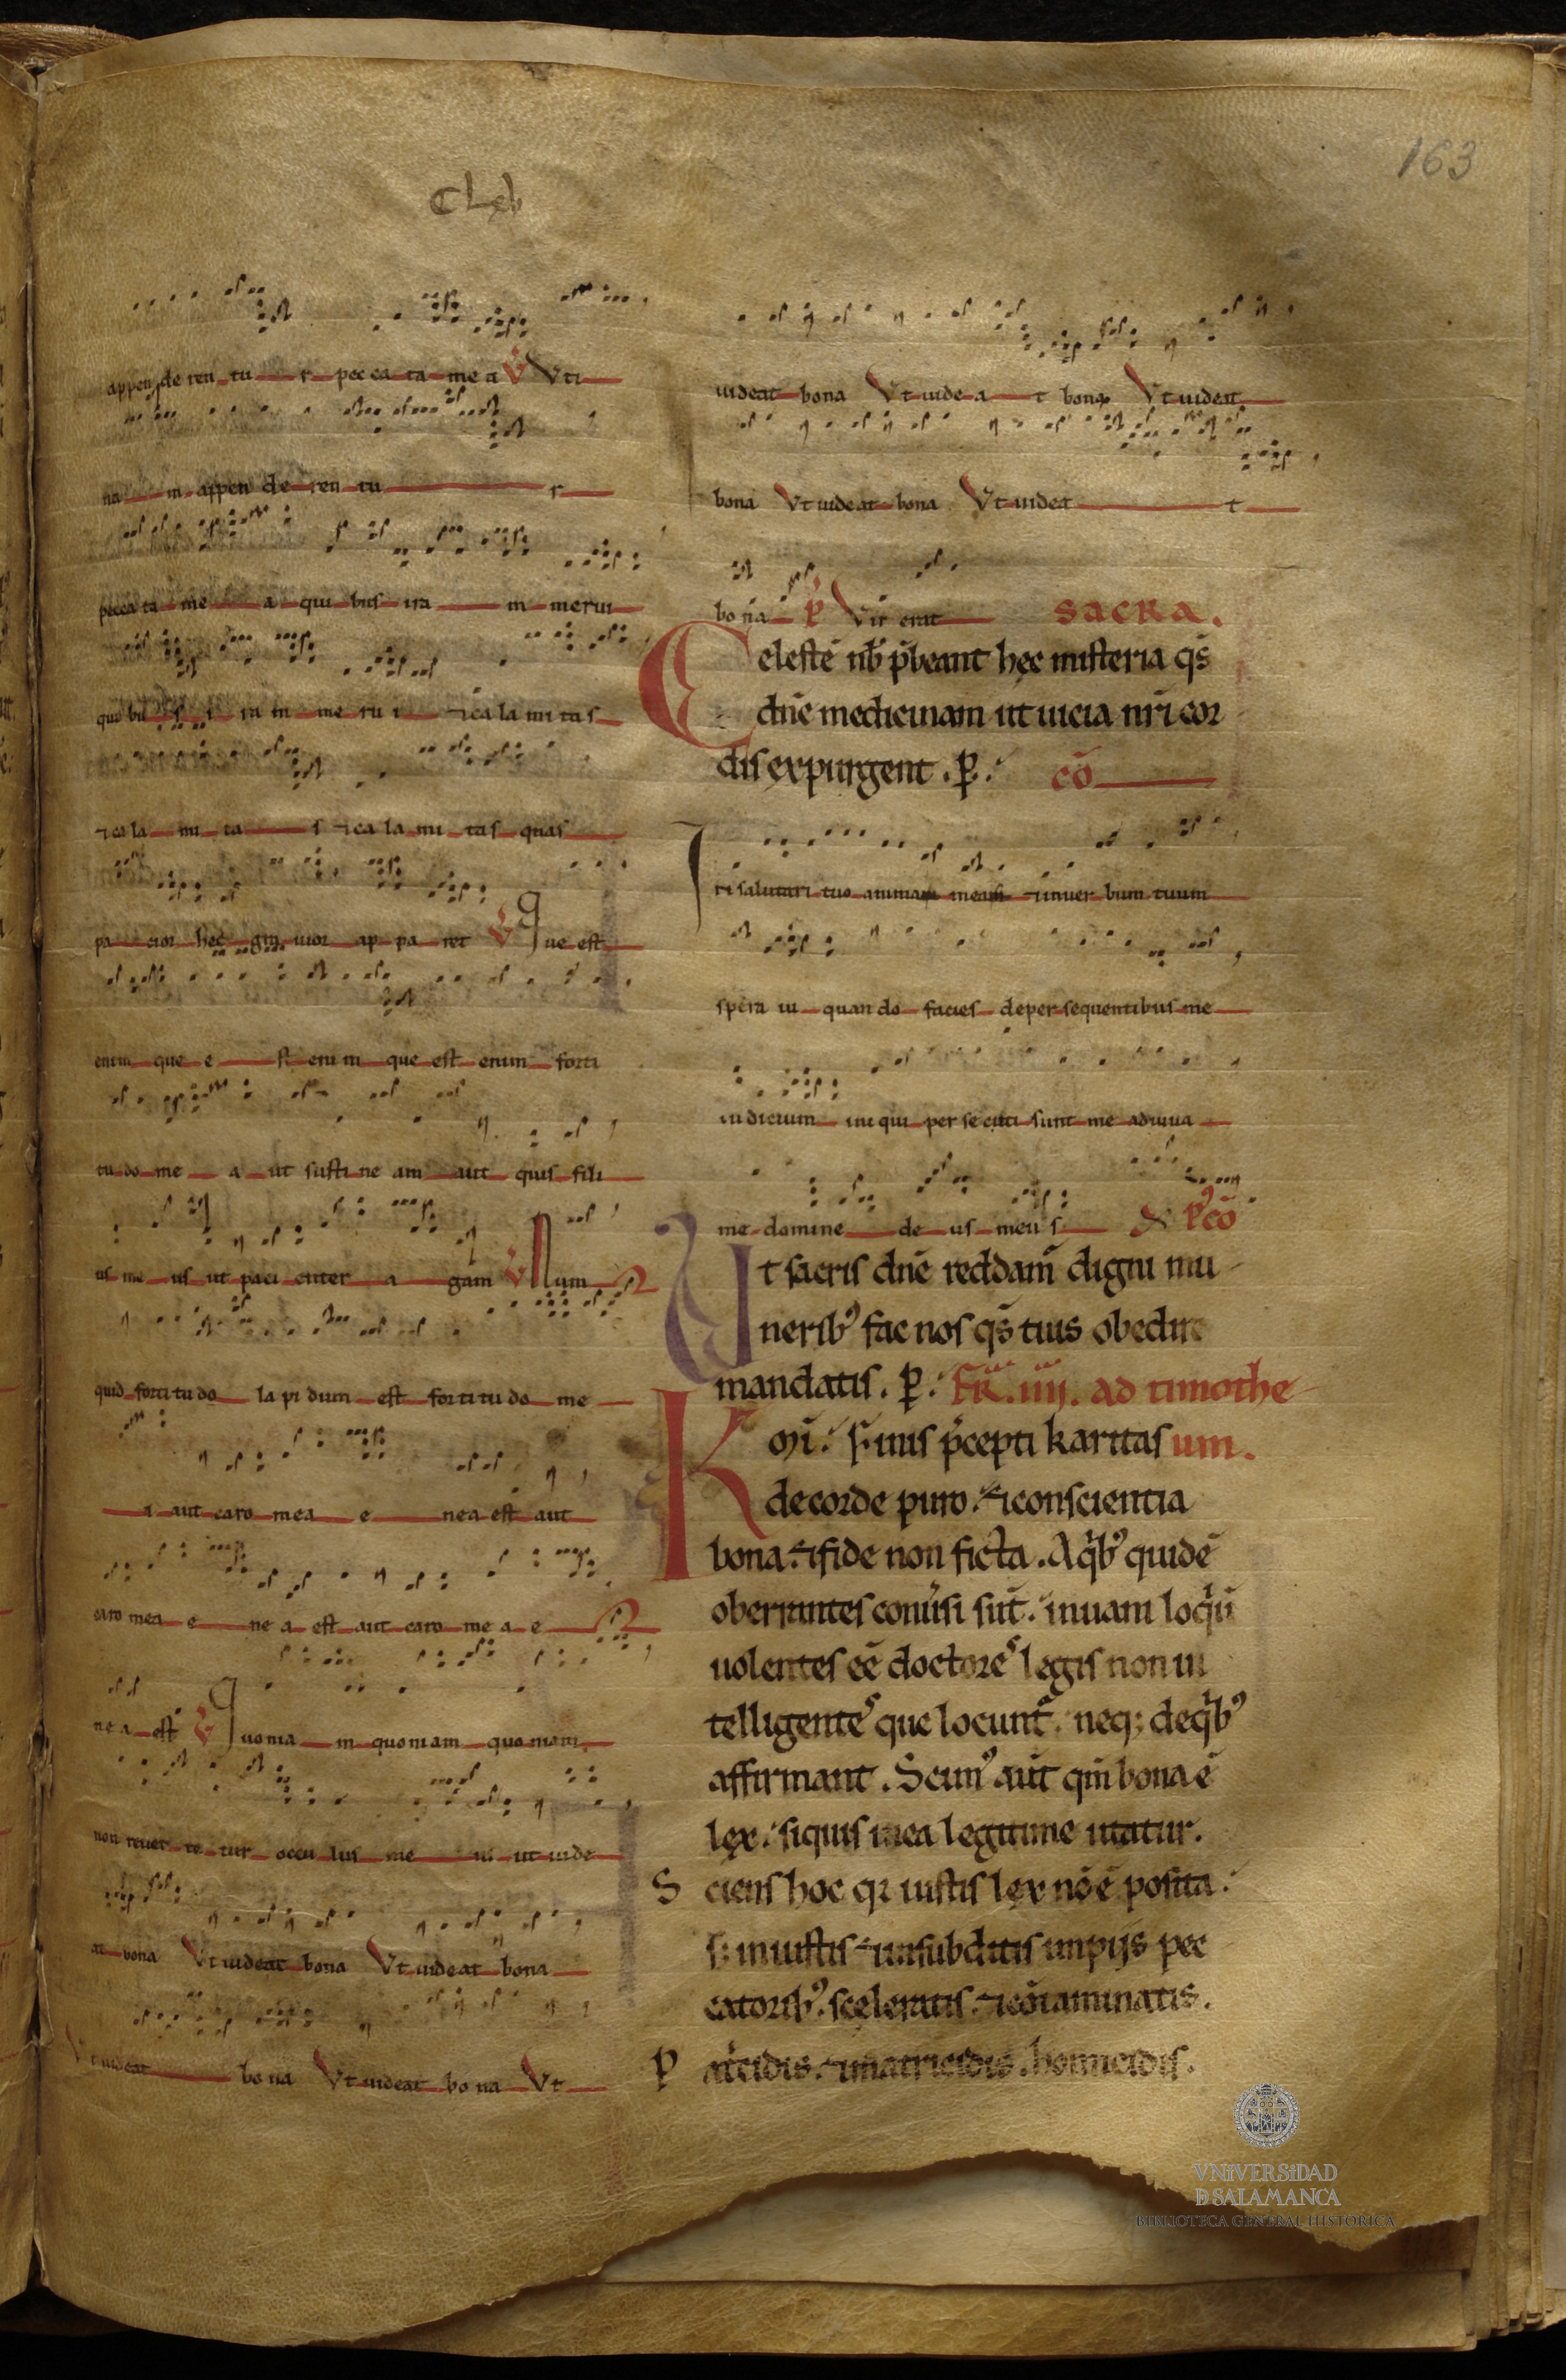 163
appen de ren tu r pec ca ta me a V Uti
na m appen de ren tu r
pecca ta me a qui bus ira m merui
qui bu s i ra m me ru i ⁊ ca la mi tas
⁊ ca la mi ta s ⁊ ca la mi tas quas
pa cior hec gra uior ap pa ret V Que est
enim que e st enim que est enim forti
tu do me a ut susti ne am aut quis fili
us me us ut paci enter a gam V Num
quid forti tu do la pi dum est forti tu do me
a aut caro mea e nea est aut
caro mea e ne a est aut caro me a e
ne a est V Quonia m quoniam quoniam
non reuer te tur occu lus me us ut uide
at bona Ut uideat bona Ut uideat bona
Ut uideat bo na Ut uideat bo na Ut
uideat bona Ut uide a t bona Ut uideat
bona Ut uideat bona Ut uidea t
bo na P̄ Vir erat SACRA.
Celestē nb̄ p̄beant hęc misteria qs̄
dn̄e medicinam ut uicia nr̄i cor
dis expurgent . p̄. cō
In salutari tuo anima mea ⁊ inuer bum tuum
spera ui quan do facies deper sequentibus me
iudicium ini qui per se cuti sunt me adiuua
me domine de us meus p̄cō
Ut sacris dn̄e reddam̄ digni mu
neribꝰ fac nos qs̄ tuis obedire
mandatis . p̄. FR̄. iiij. ad timothe
Km̄i. finis p̄cepti karitas um.
de corde puro. ⁊ conscientia
bona. ⁊ fide non ficta . A qͥbꝰ quidē
oberrantes conuͥsi sūt. in uani loqͥū
uolentes eē doctores legis non in
telligentes que locunt̄. neq; de qͥbꝰ
affirmant . Scimꝰ aūt qm̄ bona ē
lex. siquis in ea legitime utatur.
Sciens hoc qꝛ iustis lex nō ē posita.
s; iniustis ⁊ n̄ subditis impijs pec
catoribꝰ. sceleratis. ⁊ cōtaminatis.
Patͥcidis. ⁊ matricidis. homicidis.
VNIVERSIDAD
D SALAMANCA
BIBLIOTECA GENERAL HISTÓRICA